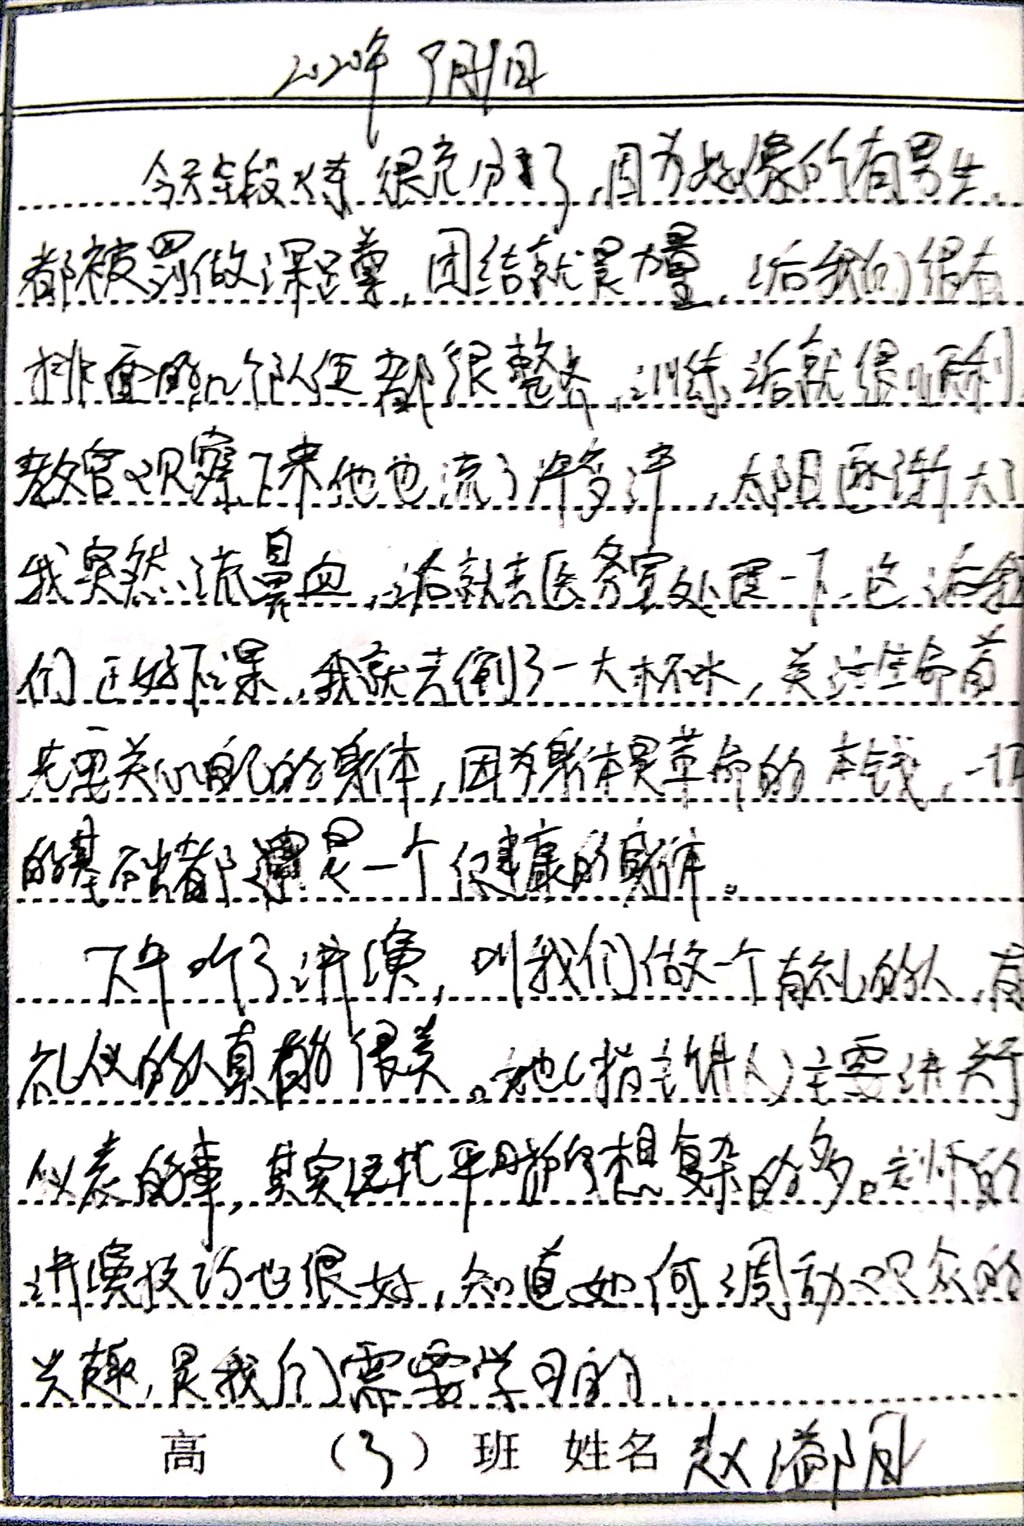 2020年9月1日
今天全段 很充分了,因为好像所有男生
都被罚做深蹲,团结就是力量,后我们很有
排面的几个队伍都很整齐,训练后就很顺利
教官观察下来他也流了许多汗,太阳逐渐大了
我突然流鼻血,后就去医务室处理一下,这后我
们正好下课,我就去倒了一大杯水,关注生命首
先要关心自己的身体,因为身体是革命的本钱,一切
的基础都 是一个健康的身体。
下午听了讲演,叫我们做一个有礼的人,有
礼仪的人真都很美。她(指主讲人)主要讲关于
仪表的事,其实远比平日所想复杂的多。老师的
讲演技巧也很好,知道如何调动观众的
兴趣,是我们需要学习的.
高 (3)班 姓名 赵 阳